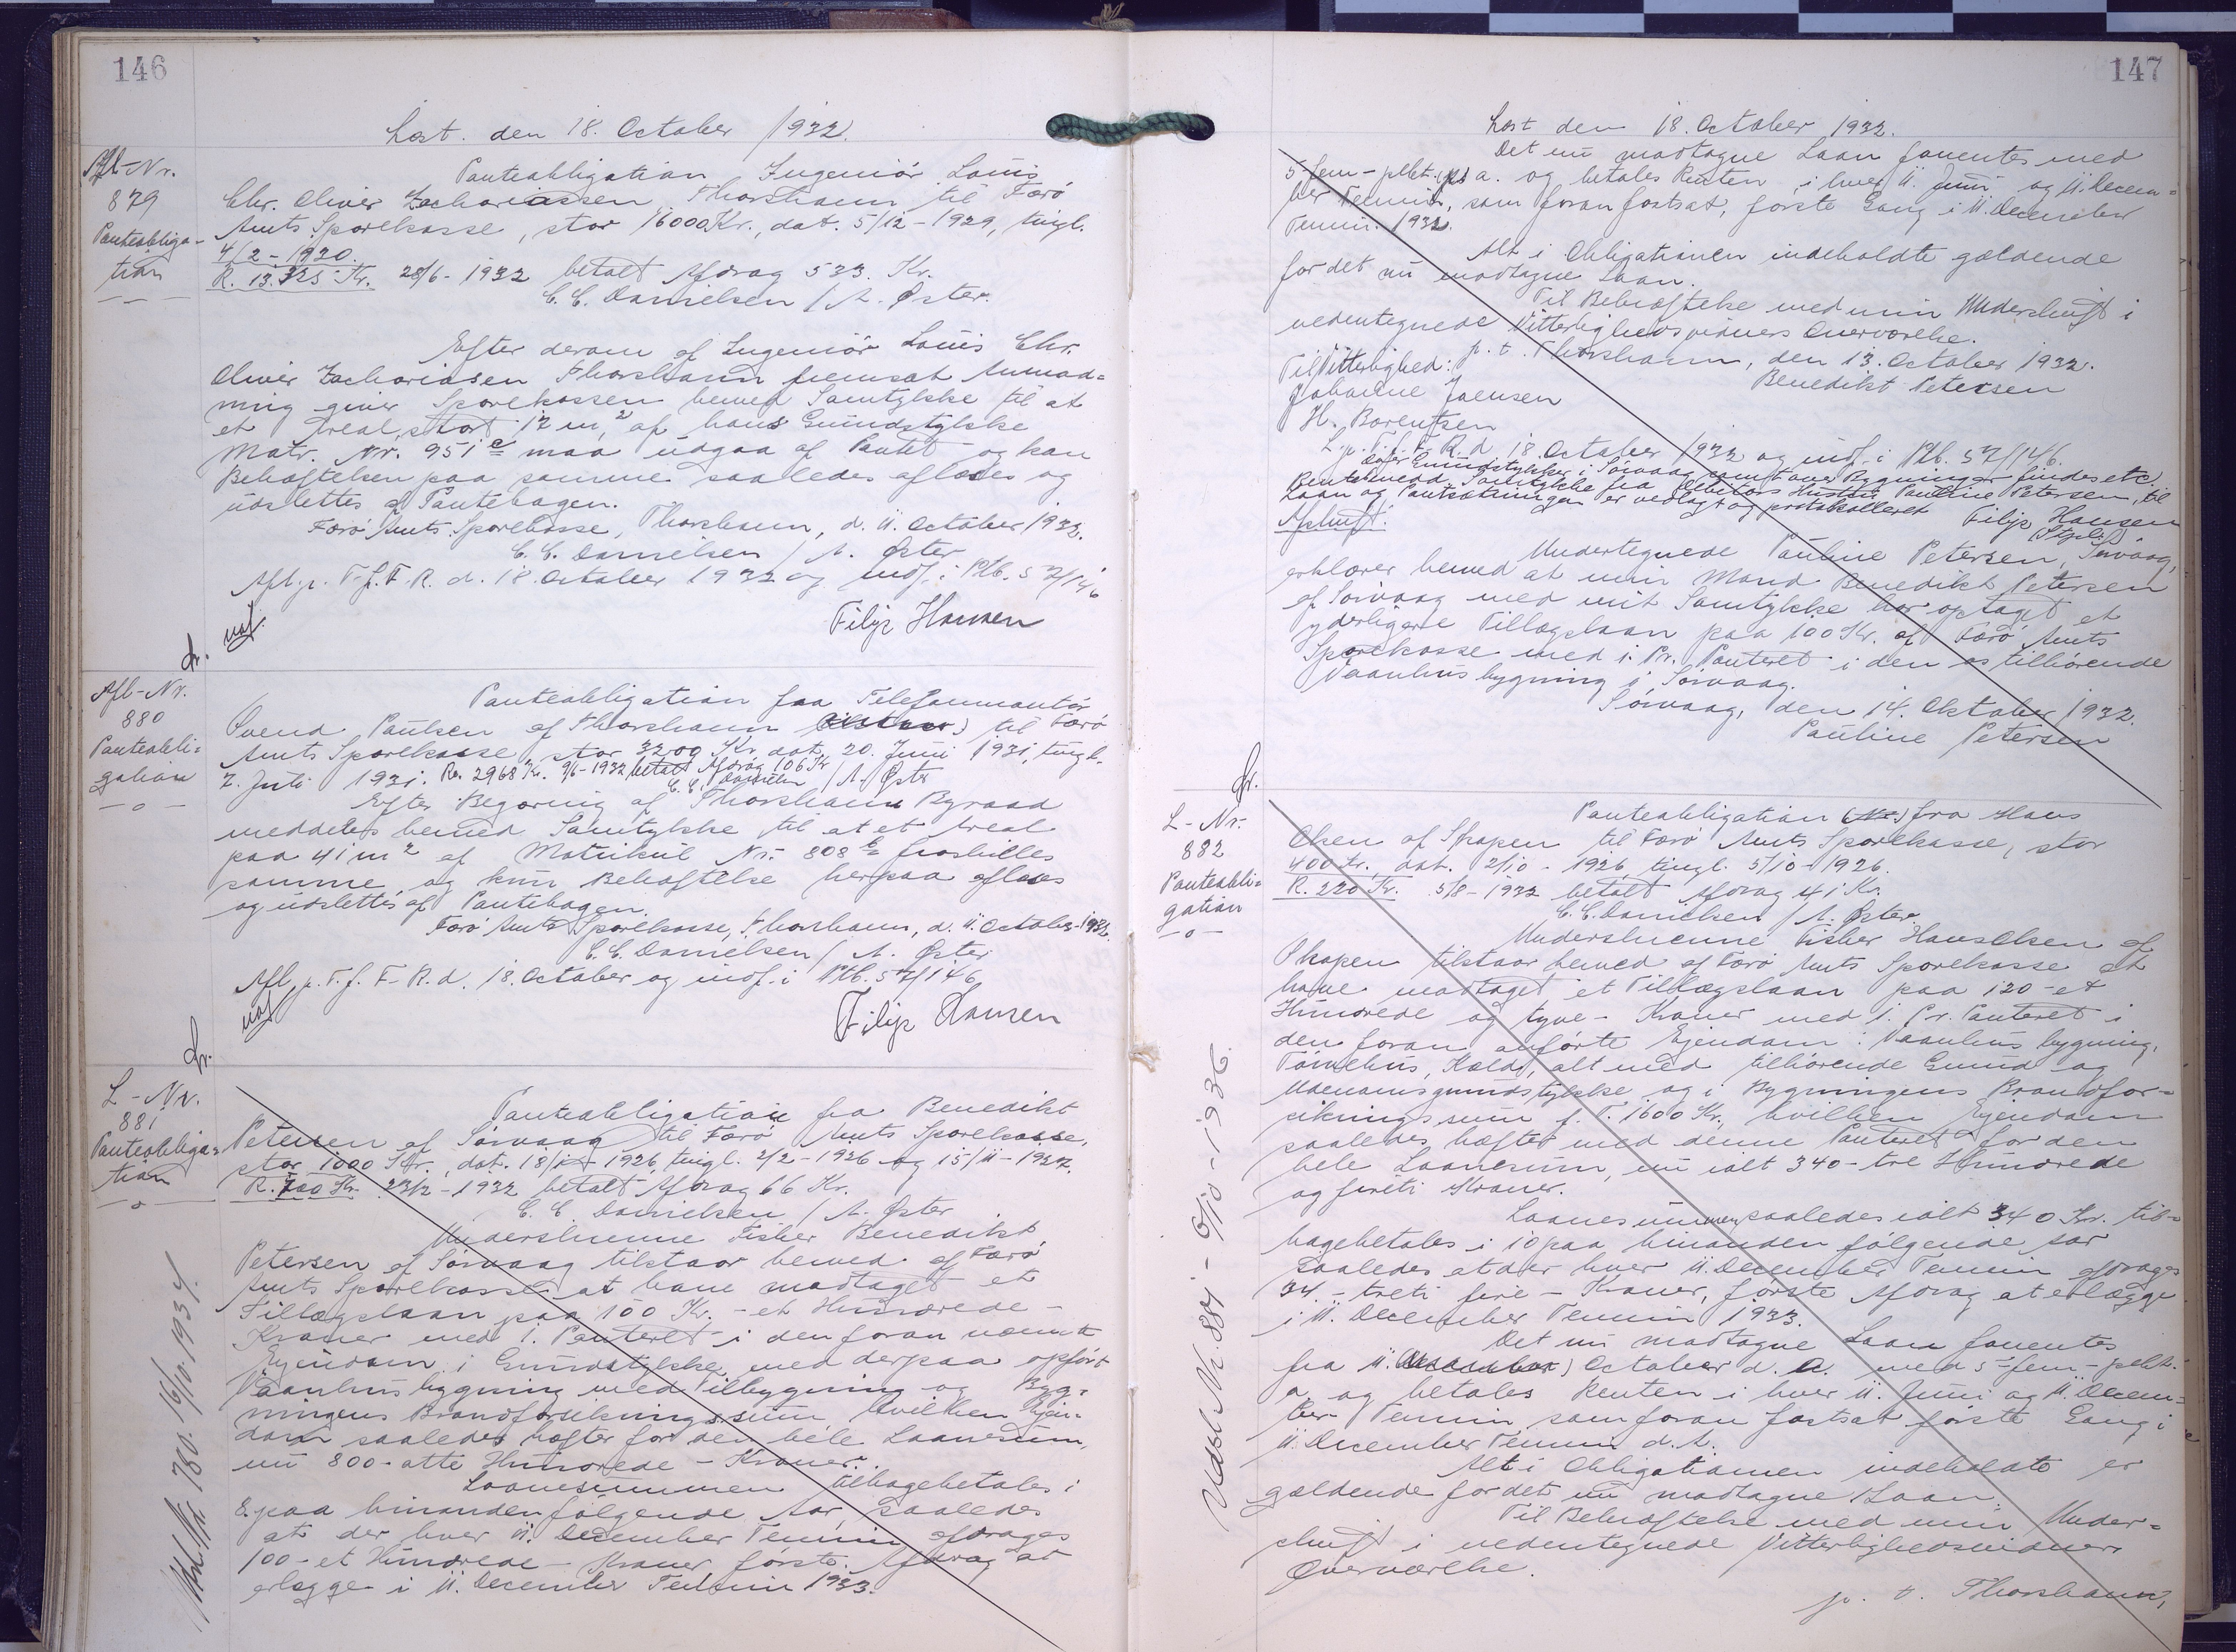 146
Læst. den 18. October 1932.
Afl-Nr.
879
Panteobliga-
tion
Panteobligation Ingeniör Louis
Chr. Oliver Zachariassen Thorshavn til Færö
Amts Sparekasse, stor 16000 Kr., dat. 5/12-1929, tingl.
4/2-1930.
R. 13.325 Kr. 28/6-1932 betalt Afdrag 533. Kr.
C. C. Danielsen / A. Øster.
Efter derom af Ingeniör Louis Chr.
Oliver Zachariasen Thorshavn fremsat Anmod=
ning giver Sparekassen herved Samtykke til at
et Areal, stort 12 m², af hans Grundstykke
Matr. Nr. 951 c maa udgaa af Pantet og kan
Behæftelsen paa samme saaledes aflæses og
udslettes af Pantebogen.
Færö Amts Sparekasse, Thorshavn, d. 11. October 1932.
C. C. Danielsen / A. Øster
Afl. p. T. f. F. R. d. 18. October 1932 og indf. i Ptb. 57/146
Filip Hansen
Afl-Nr.
880
Panteobli=
gation
-o-
Panteobligation fra Telefonmontör
Svend Poulsen af Thorshavn til Færö
Amts Sparekasse, stor 3200 Kr. dat. 20. Juni 1931, tingl.
2. Juli 1931. Re. 2968 Kr. 9/6-1932 betalt Afdrag 106 Kr
C. C. Danielsen / A. Øster
Efter Begæring af Thorshavn Byraad
meddeles herved Samtykke til at et Areal
paa 41 m² af Matrikul Nr. 808 b fraskilles
samme, og kun Behæftelse herpaa aflæses
og udslettes af Pantebogen.
Færö Amts Sparekasse, Thorshavn, d. 11. October 1932.
C. C. Danielsen / A. Øster
Afl. p. T. f. F. R. d. 18. October og indf. i Ptb. 57/146
Filip Hansen
L-Nr.
881
Panteobliga=
tion
-o-
Panteobligation fra Benedikt
Petersen af Sörvaag til Færö Amts Sparekasse,
stor 1000 Kr., dat. 18/1-1926, tingl. 2/2-1926 og 15/11-1927.
R. 700 Kr. 23/2-1932 betalt Afdrag 66 Kr.
C. C. Danielsen / A. Øster
Underskrevne Fisker Benedikt
Petersen af Sörvaag tilstaar herved af Færö
Amts Sparekasse at have modtaget et
Tillægslaan paa 100 Kr. - et Hundrede -
Kroner med 1. Panteret i den foran nævnte
Ejendom i Grundstykke med derpaa opfört
Vaanhusbygning med Tilbygning og Byg=
ningens Brandforsikringssum, hvilken Ejen=
dom saaledes hæfter for den hele Laanesum,
nu 800 - otte Hundrede - Kroner.
Laanesummen tilbagebetales i
8 paa hinanden fölgende Aar, saaledes
at der hver 11. December Termin afdrages
100 - et Hundrede - Kroner, förste Afdrag at
erlægge i 11. December Termin 1933.
147
Læst den 18. October 1932.
Det nu modtagne Laan forrentes med
5 - fem - pCt. p. a. og betales Renten i hver 11. Juni og 11. Decem=
ber Termin, som foran fastsat, förste Gang i 11. December
Termin 1932.
Alt i Obligationen indeholdte gældende
for det nu modtagne Laan.
Til Bekræftelse med min Underskrift i
nedentegnede Vitterlighedsvidners Overværelse.
p. t. Thorshavn, den 13. October 1932.
Til Vitterlighed:
Benedikt Petersen
Johanne Joensen
H. Barentsen
L. p. T. f. F. R. d. 18. October 1932 og indf. i Ptb. 57/146.
over Grundstykker i Sörvaag samt over Bygninger findes etc.
Samtykke fra Debitors Hustru Pauline Petersen, til
Laan og Pantsætningen er vedlagt og protokolleret
Filip Hansen
Afskrift:
Undertegnede Pauline Petersen, Sörvaag,
erklærer herved at min Mand Benedikt Petersen
af Sörvaag med mit Samtykke har optaget et
yderligere Tillægslaan paa 100 Kr. af Færö Amts
Sparekasse med 1. Pr. Panteret i den os tilhörende
Vaanhusbygning i Sörvaag.
Sörvaag, den 14. Oktober 1932.
Pauline Petersen
L-Nr.
882
Panteobli=
gation
-o-
Panteobligation fra Hans
Olsen af Skopen til Færö Amts Sparekasse, stor
400 Kr., dat. 2/10-1926, tingl. 5/10-1926.
R. 220 Kr. 5/8-1932 betalt Afdrag 41 Kr.
C. C. Danielsen / A. Øster
Underskrevne Fisker Hans Olsen af
Skopen tilstaar herved af Færö Amts Sparekasse at
have modtaget et Tillægslaan paa 120 - et
Hundrede og tyve - Kroner med 1. Pr. Panteret i
den foran anförte Ejendom: Vaanhusbygning,
Törvehus, Kælder, alt med tilhörende Grund og
Udenomsgrundstykke og i Bygningens Brandfor=
sikringssum f. T. 1600 Kr., hvilken Ejendom
saaledes hæfter med denne Panteret for den
hele Laanesum, nu ialt 340 - tre Hundrede
og fireti Kroner.
Laanesummen, saaledes ialt 340 Kr. til=
bagebetales i 10 paa hinanden fölgende Aar
saaledes at der hver 11. December Termin afdrages
34. - treti fire - Kroner, förste Afdrag at erlægge
i 11. December Termin 1933.
Det nu modtagne Laan forrentes
fra 11. October d. A. med 5 - fem - pCt.
p. a. og betales Renten i hver 11. Juni og 11. Decem=
ber Termin som foran fastsat förste Gang i
11. December Termin d. A.
Alt i Obligationen indeholdte er
gældende for det nu modtagne Laan.
Til Bekræftelse med min Under=
skrift i nedentegnede Vitterlighedsvidners
Overværelse.
p. t. Thorshavn,
Udsl. Nr. 780. 16/10. 1934.
Udsl. Nr. 884 - 6/10-1936.